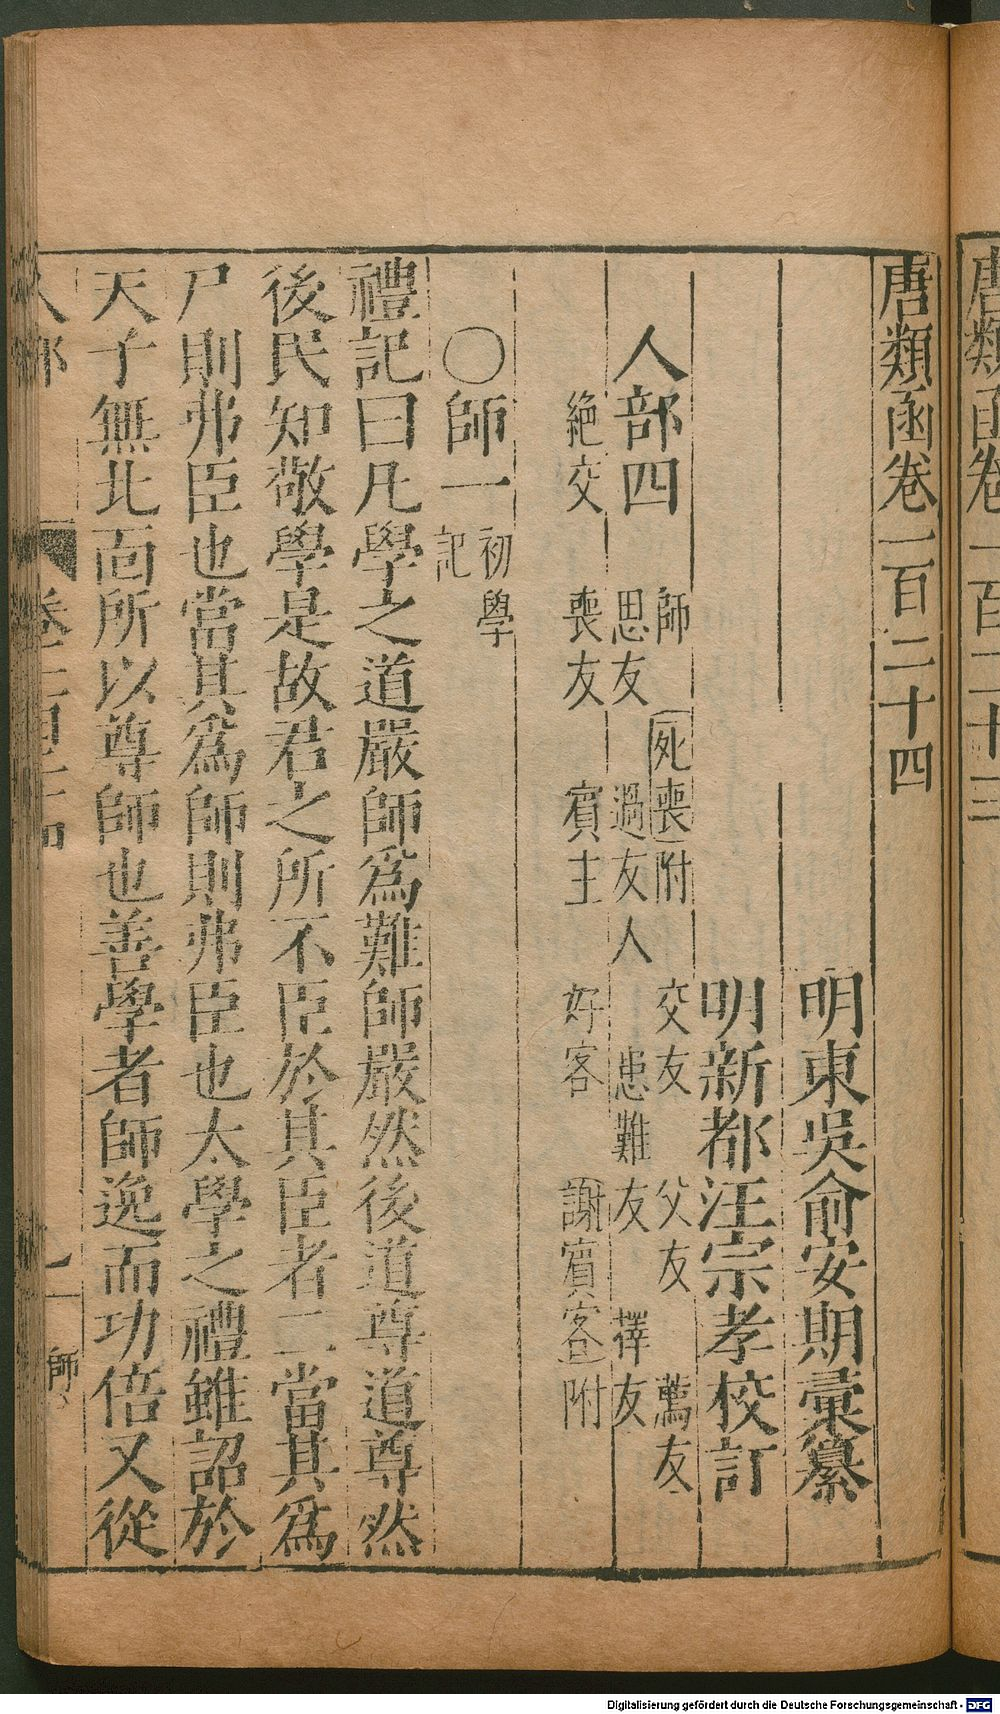 唐類函卷一百二十三
唐類函卷一百二十四
明東吳俞安期彙纂
明新都汪宗孝校訂
人部四
師 死喪附 交友 父友 薦友
思友 過友人 患難友 擇友
絕交 喪友 賓主 好客 謝賓客附
〇師一 初學記
禮記曰凡學之道嚴師爲難師嚴然後道尊道尊然
後民知敬學是故君之所不臣於其臣者二當其爲
尸則弗臣也當其爲師則弗臣也太學之禮雖詔於
天子無北面所以尊師也善學者師逸而功倍又從
人部 卷一百二十四 一 師
Digitalisierung gefördert durch die Deutsche Forschungsgemeinschaft - DFG